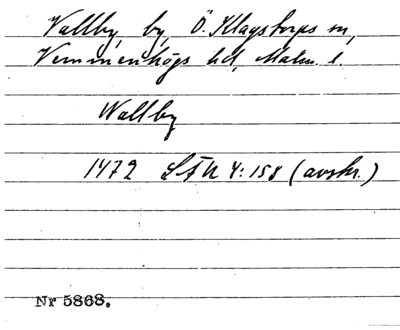 Vallby, by, Ö. Klagstorps sn,
Vemmenhögs hd, Malm. l.
Wallby
1472 LÄU 4:158 (avskr.)
Nr 5868.